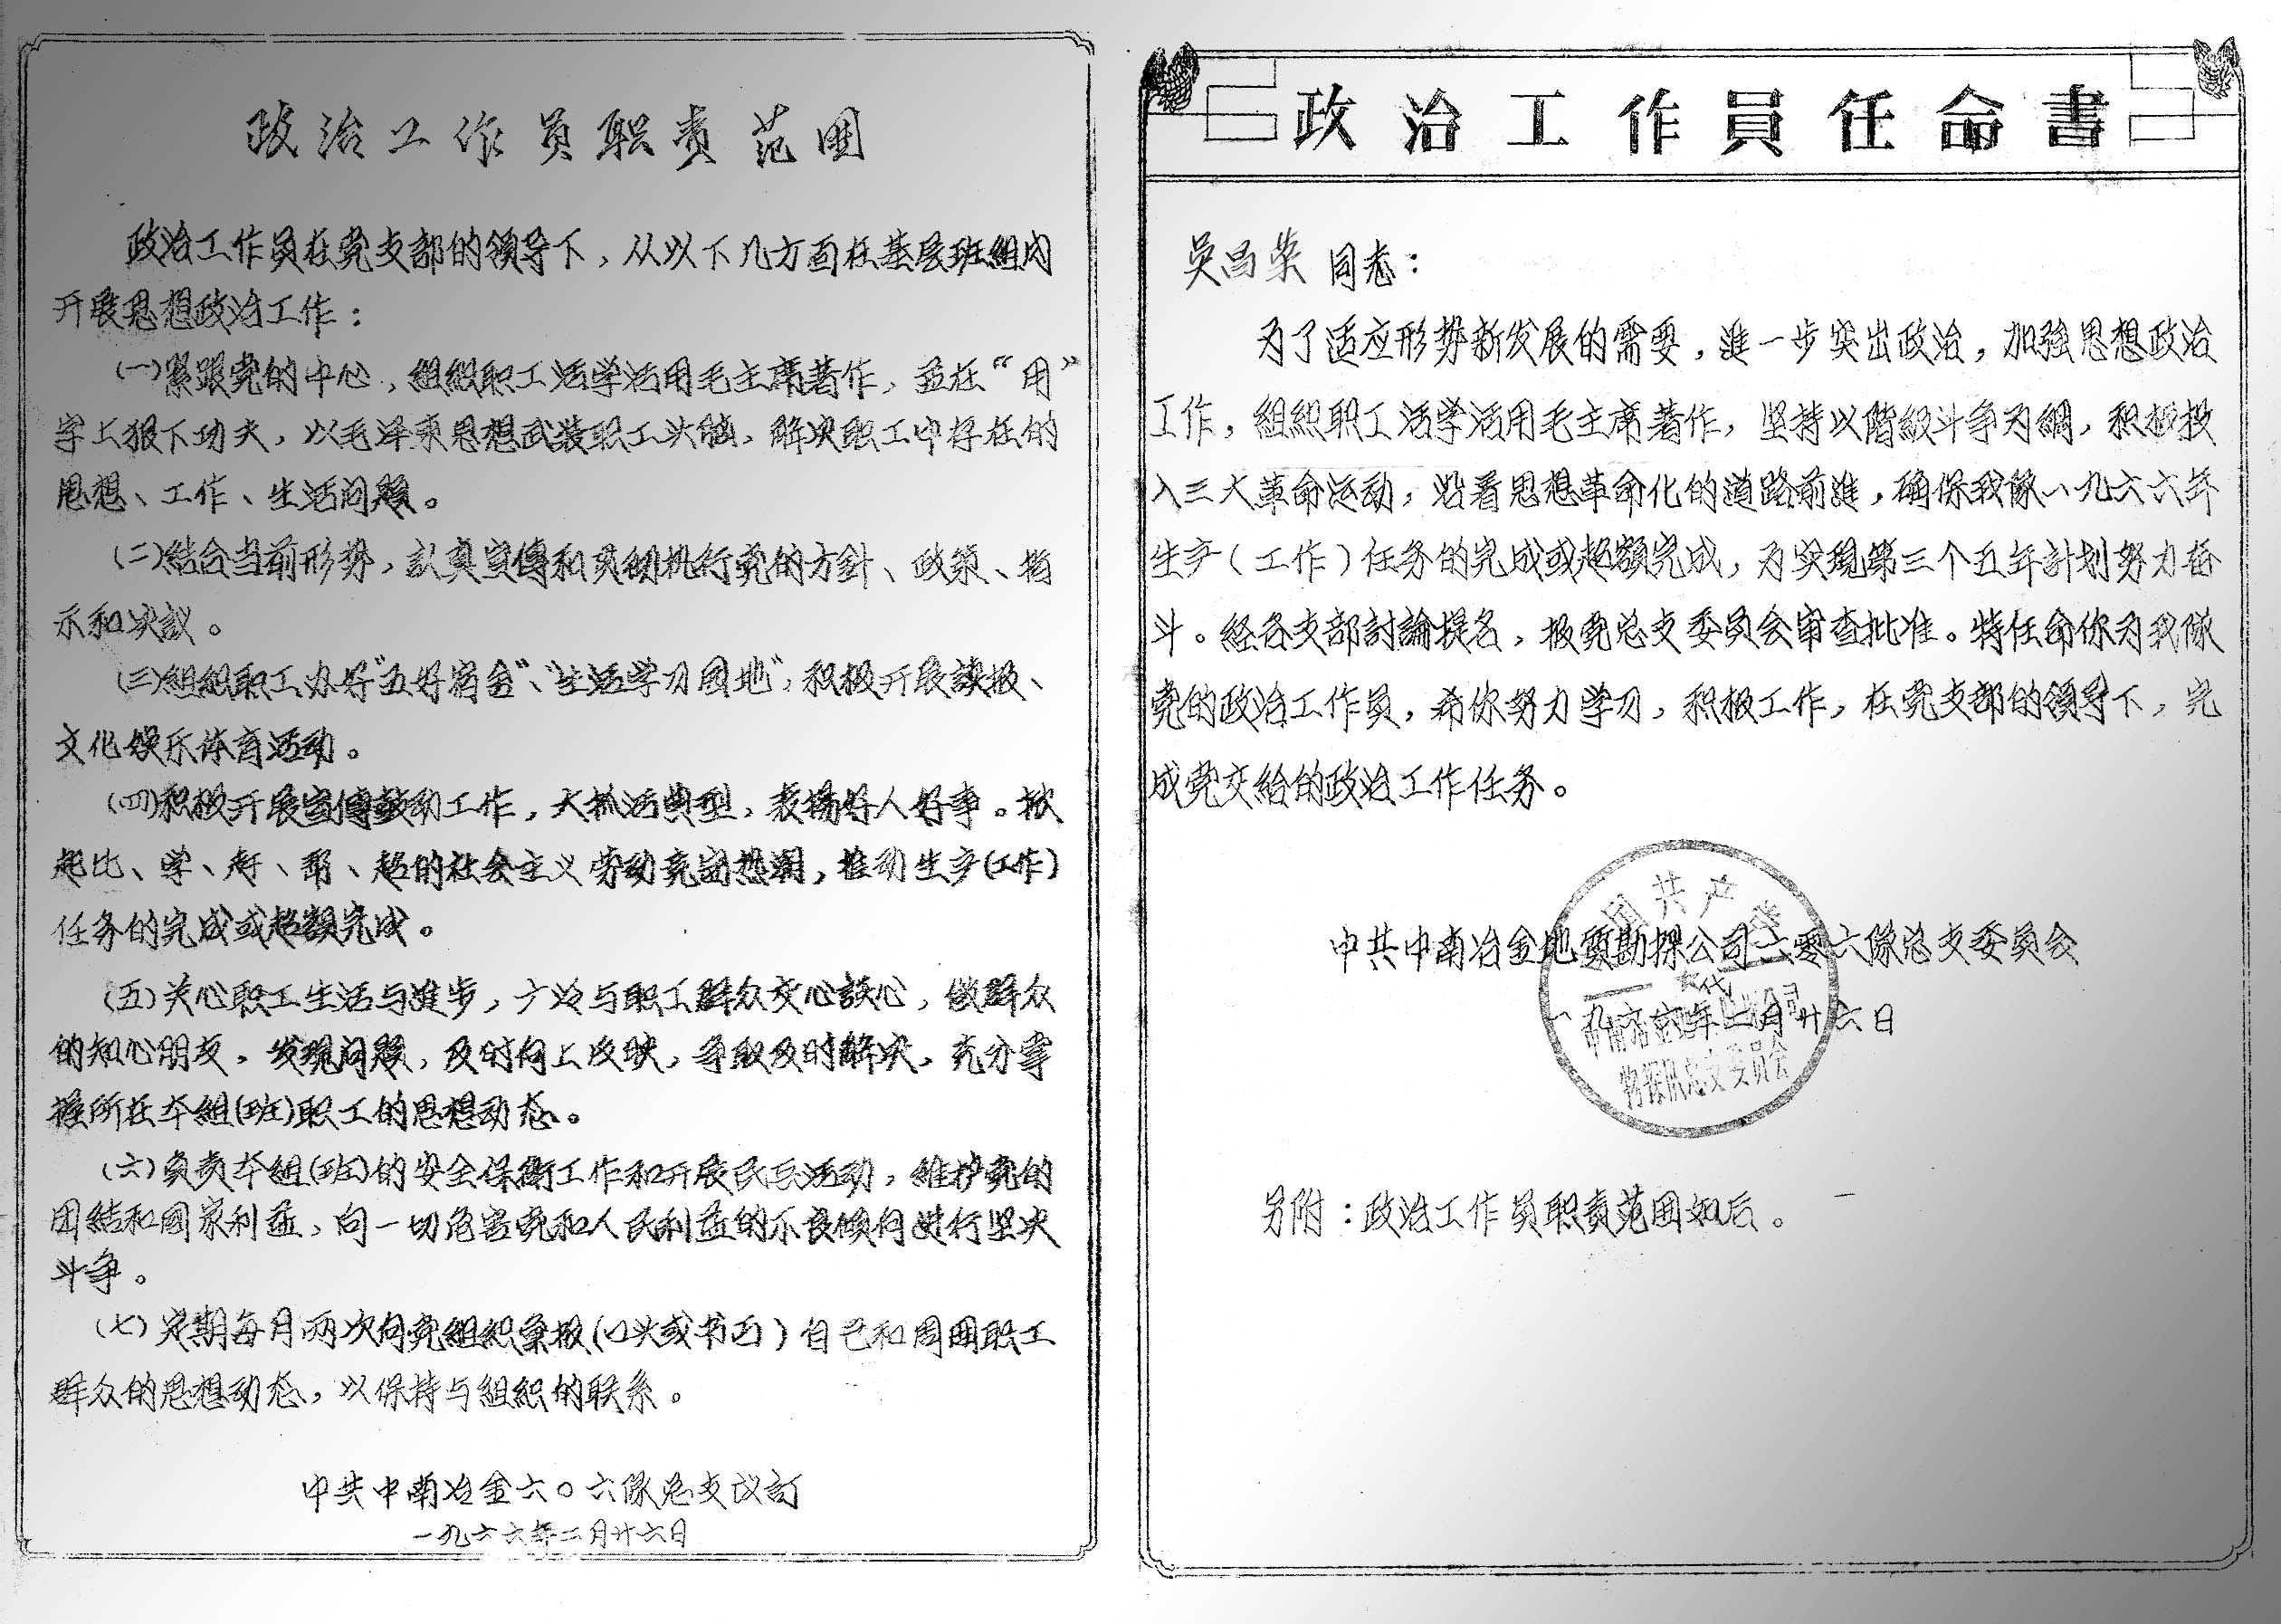 政治工作员职责范围
政治工作员在党支部的领导下，从以下几方面在基层班組内
开展思想政治工作：
(一)紧跟党的中心，组織职工活学活用毛主席著作，並在“用”
字上狠下功夫，以毛泽东思想武装职工头脑，解决职工中存在的
思想、工作、生活问题。
(二)结合当前形势，認真宣傳和贯彻执行党的方針、政策、指
示和决議。
(三)组織职工办好“五好宿舍”、“生活学习园地”，积极开展读报、
文化娱乐体育活动。
(四)积极开展宣傳鼓动工作，大抓活典型，表揚好人好事。掀
起比、学、赶、帮、超的社会主义劳动竞赛热潮，推动生产(工作)
任务的完成或超额完成。
(五)关心职工生活与進步，广泛与职工群众交心談心，做群众
的知心朋友，发现问题，及时向上反映，争取及时解决，充分掌
握所在本組(班)职工的思想动态。
(六)负责本組(班)的安全保衛工作和开展民兵活动，維护党的
团結和国家利益，向一切危害党和人民利益的不良倾向進行坚决
斗争。
(七)定期每月两次向党組织彙报(口头或书面)自己和周围职工
群众的思想动态，以保持与組織的联系。
中共中南冶金六〇六隊总支议訂
一九六六年二月廿六日
政治工作員任命書
吴昌荣 同志：
为了适应形势新发展的需要，進一步突出政治，加强思想政治
工作，組織职工活学活用毛主席著作，坚持以階級斗争为綱，积极投
入三大革命运动，沿着思想革命化的道路前進，确保我隊一九六六年
生产（工作）任务的完成或超额完成，为实现第三个五年計划努力奋
斗。經各支部討論提名，报党总支委员会审查批准。特任命你为我隊
党的政治工作員，希你努力学习，积极工作，在党支部的领导下，完
成党交給的政治工作任务。
中共中南冶金地質勘探公司六零六隊总支委员会
一九六六年二月廿六日
中国共产党
物探队总支委员会
另附：政治工作员职责范围如后。